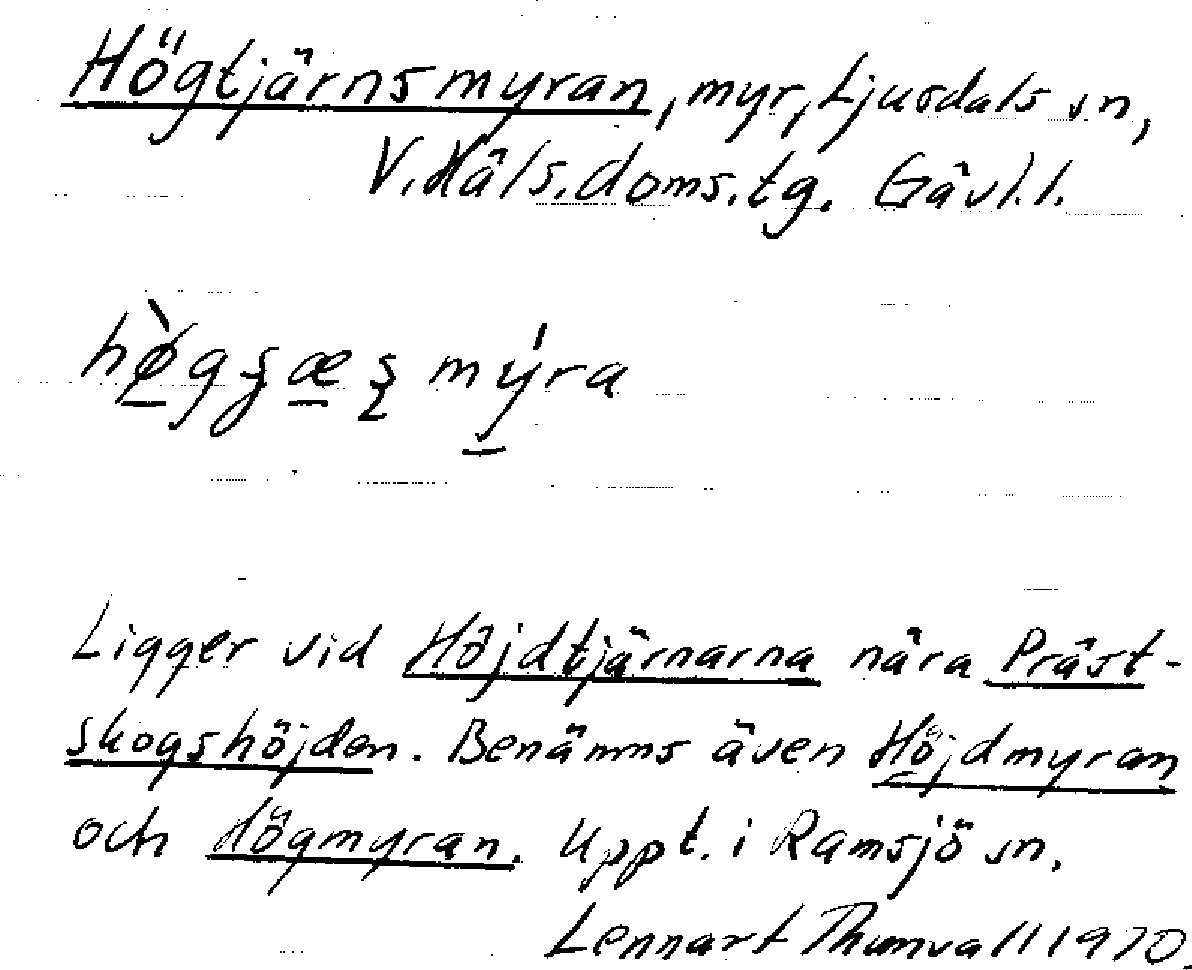 Högtjärnsmyran, myr, Ljusdals sn,
V. Häls. doms. tg. Gävl. l.
hø̀gʂæʂmýra
Ligger vid Höjdtjärnarna nära Präst-
skogshöjden. Benämns även Höjdmyran
och Högmyran. Uppt. i Ramsjö sn.
Lennart Thunvall 1970.